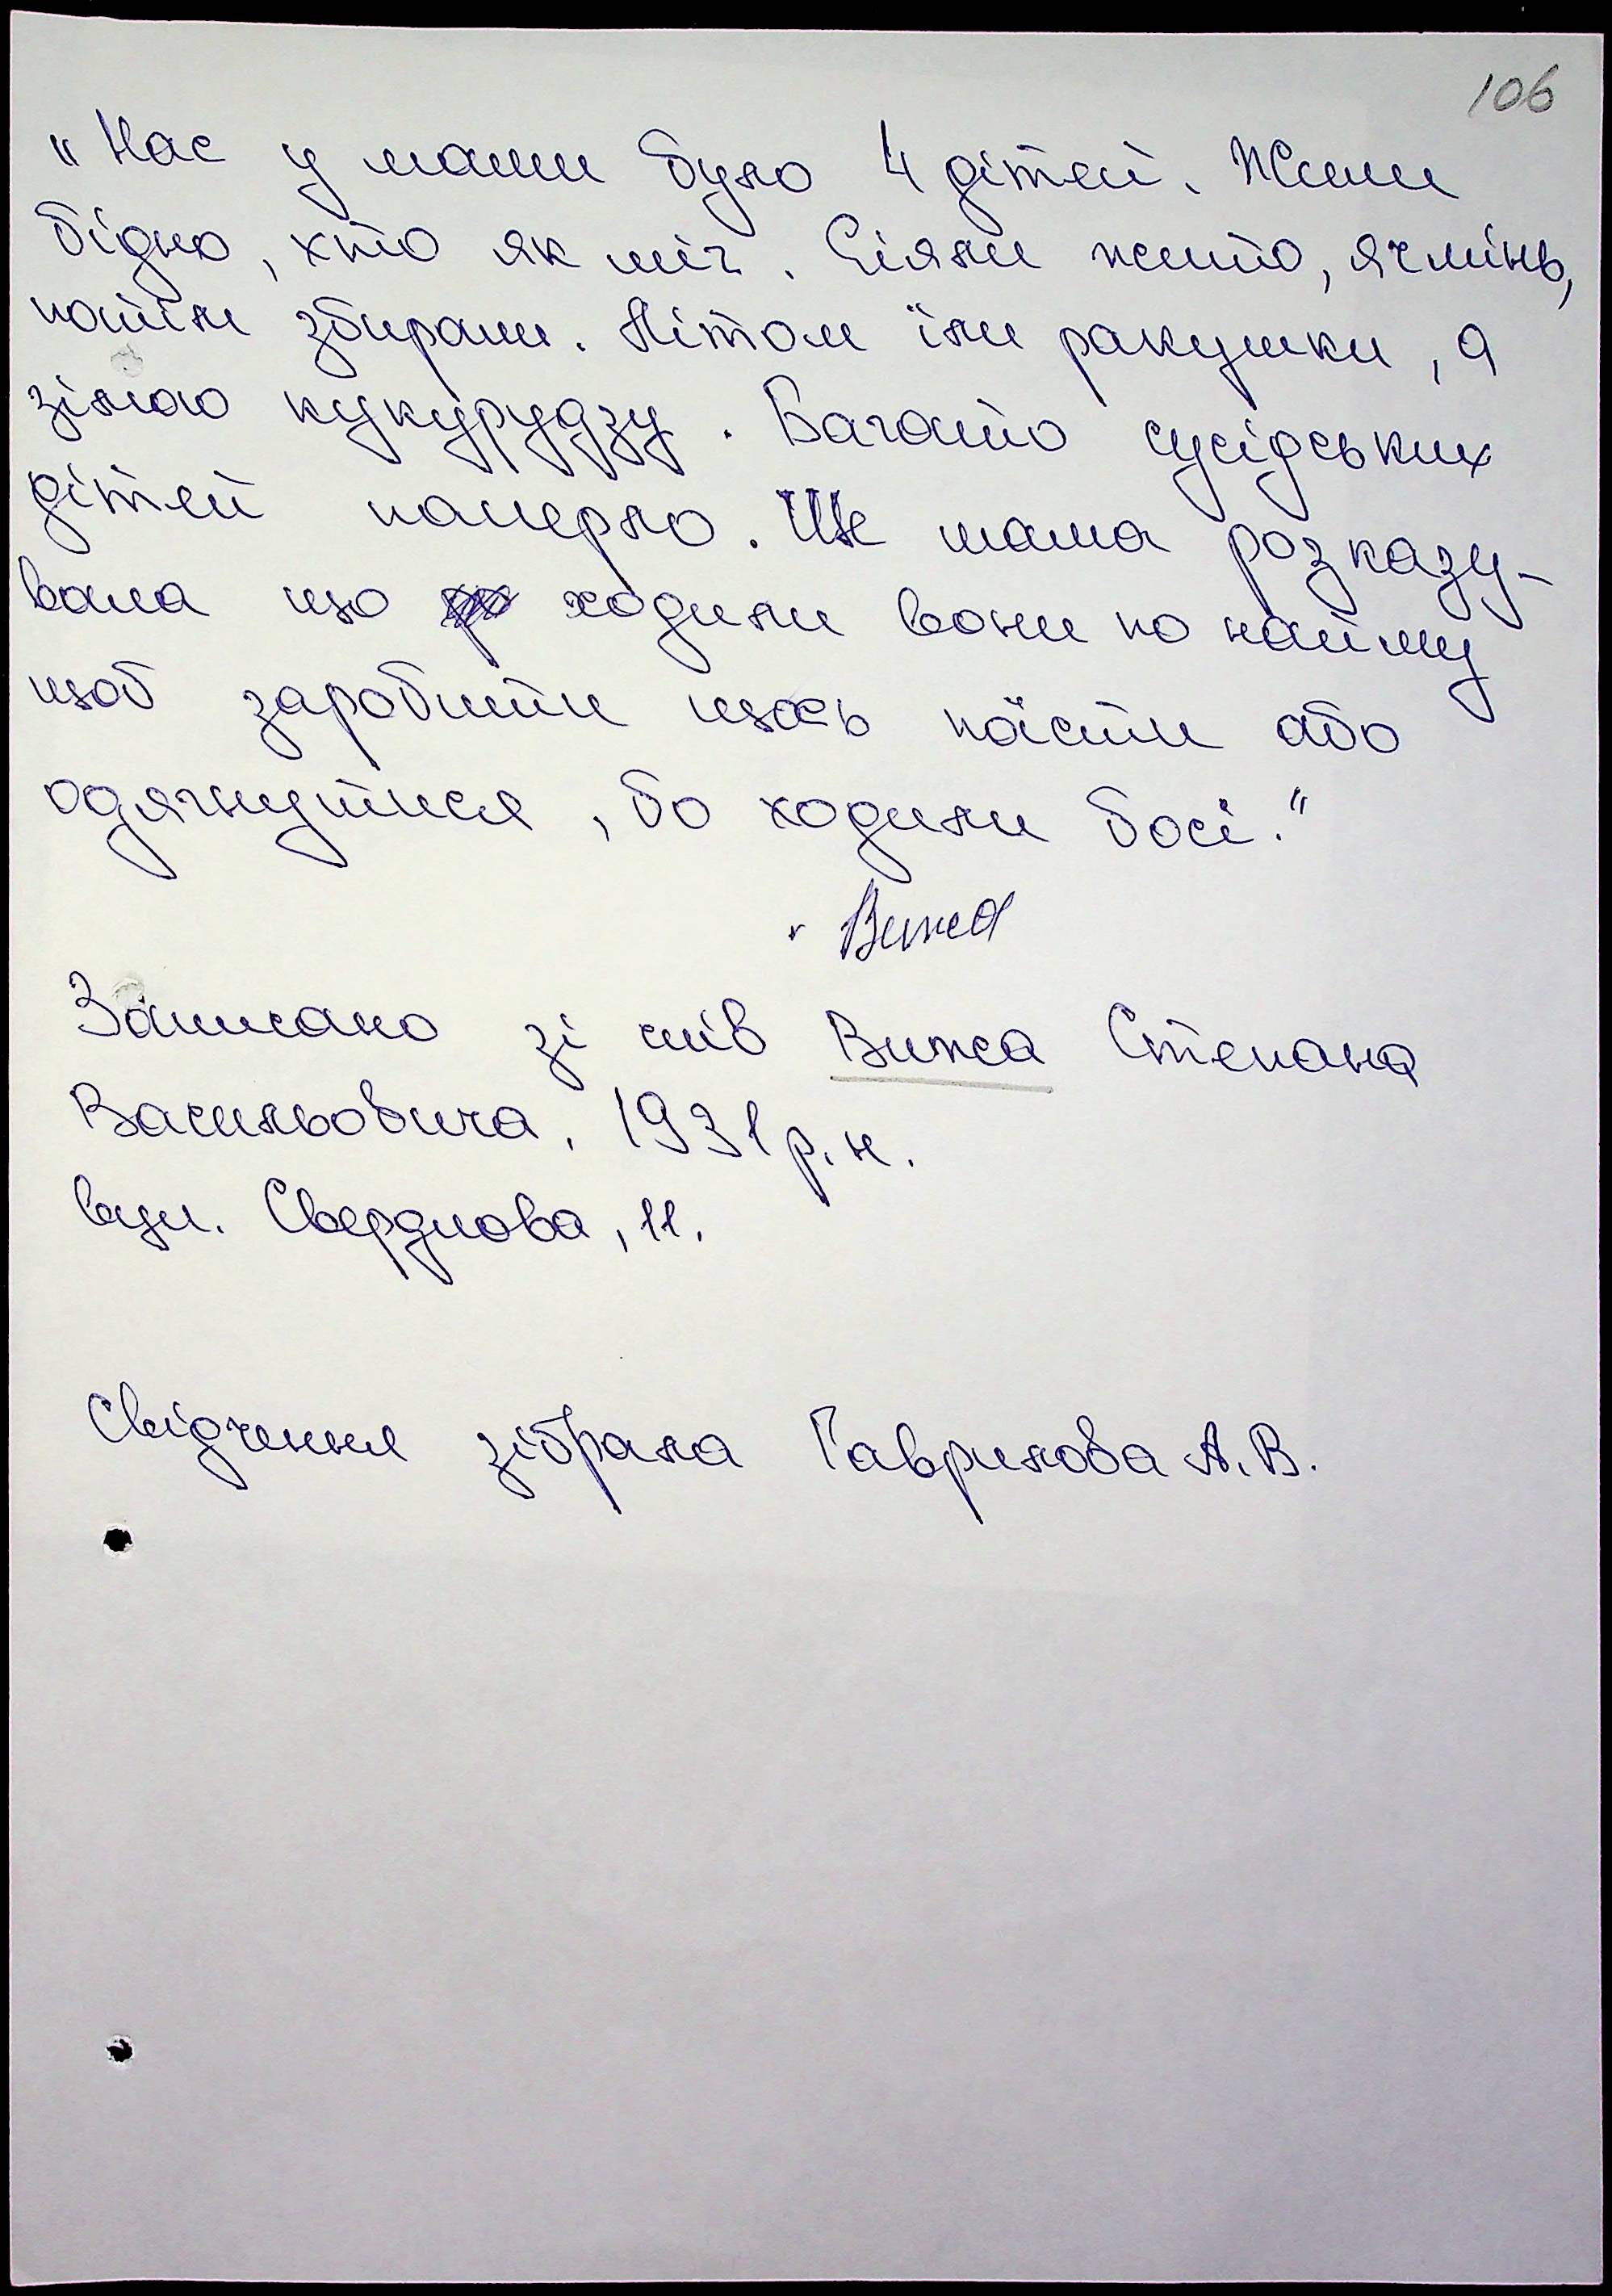 106
"Нас у мами було 4 дітей. Жили
бідно, хто як міг. Сіяли жито, ячмінь,
потім збирали. Літом їли ракушки, а
зімою кукурудзу. Багато сусідських
дітей померло. Ще мама розказу-
вала що ходили вони по найму
щоб заробити щось поїсти або
одягнутися, бо ходили босі."
Вижа
Записано зі слів Вижа Степана
Васильовича, 1931 р.н.
вул. Свердлова, 11.
Свідчення зібрала Гаврилова А.В.